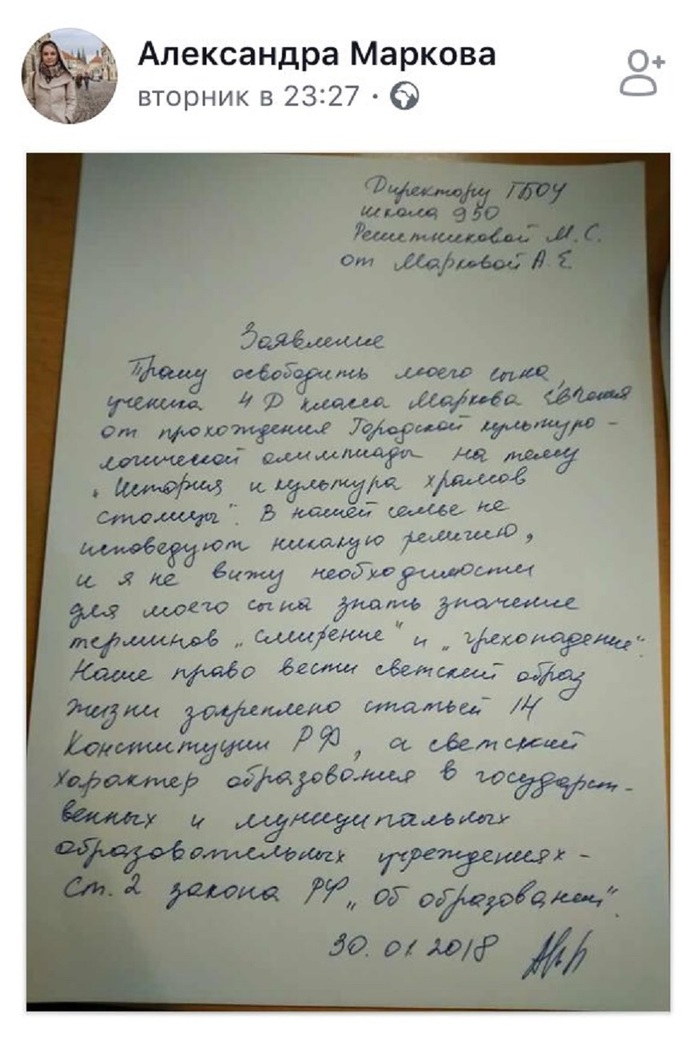 Александра Маркова
вторник в 23:27 ·
Директору ГБОУ
школа 950
Решетниковой М. С.
от Марковой А. Е.
Заявление
Прошу освободить моего сына,
ученика 4 Д класса Маркова Евгения
от прохождения Городской культуро-
логической олимпиады на тему
„История и культура храмов
столицы". В нашей семье не
исповедуют никакую религию,
и я не вижу необходимости
для моего сына знать значение
терминов „смирение" и „грехопадение".
Наше право вести светский образ
жизни закреплено статьей 14
Конституции РФ, а светский
характер образования в государст-
венных и муниципальных
образовательных учреждениях -
ст. 2 закона РФ „об образовании".
30.01.2018